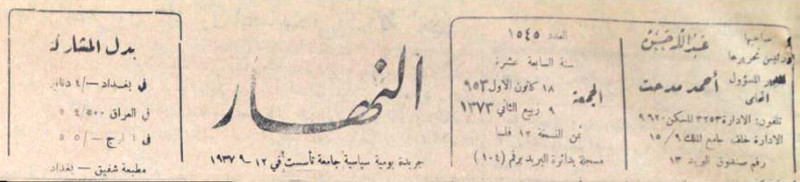 صاحبها
ورئيس تحريرها
عبدالله حسين
المدير المسؤول
المحامي
أحمد مدحت
تلفون: الادارة ٣٢٥٣ المسكن ٩٦٢٠
الادارة خلف جامع الملك ٩ / ١٥
رقم صندوق البريد ١٣
العدد ١٥٤٥
سنة السابعة عشرة
الجمعة
١٨ كانون الأول ٩٥٣
٩ ربيع الثاني ١٣٧٣
ثمن النسخة ١٢ فلسا
مسجلة بدائرة البريد برقم (١٠٤)
النهار
جريدة يومية سياسية جامعة تأسست في ١٢-٩-١٩٣٧
بدل المشاركة
في بغداد —/٤ دنانير
في العراق ٤/٥٠٠
في الخارج —/٥
مطبعة شفيق — بغداد